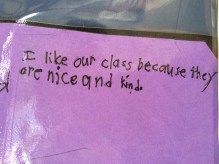 I like our class because they
are nice and kind.